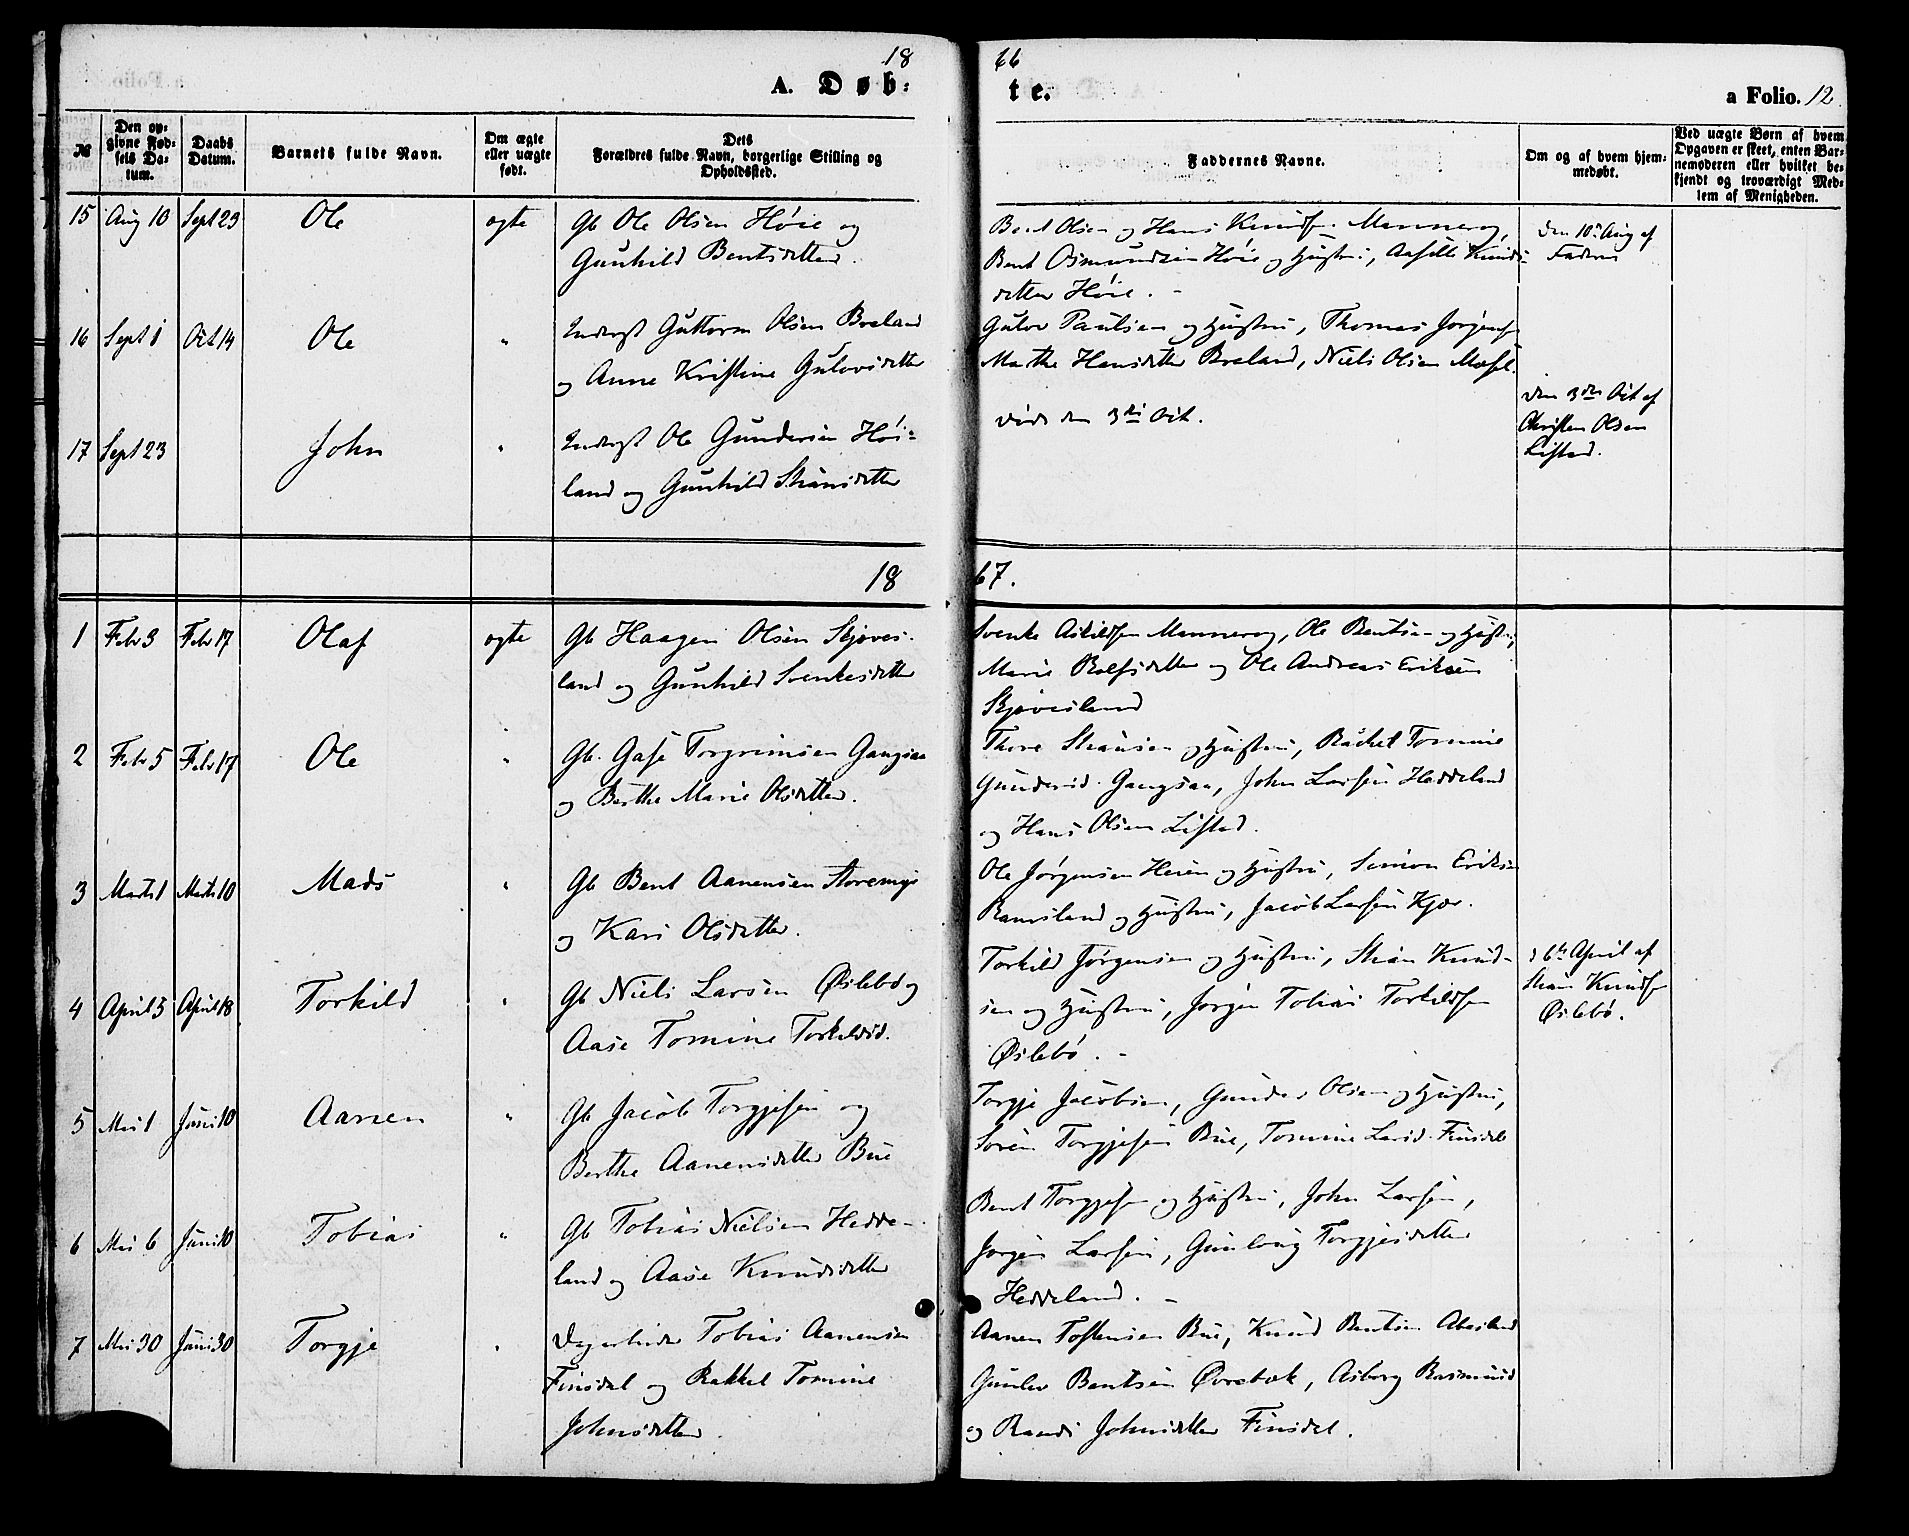 18
66
A. Døb=
te.
a Folio. 12.
№
Den op=
givne Fød=
sels Da=
tum.
Daabs
Datum.
Barnets fulde Navn.
Om ægte
eller uægte
født.
Dets
Forældres fulde Navn, borgerlige Stilling og
Opholdssted.
Faddernes Navne.
Om og af hvem hjem=
medøbt.
Ved uægte Børn af hvem
Opgaven er skeet, enten Bar=
nemoderen eller hvilket be=
kjendt og troværdigt Med=
lem af Menigheden.
15 Aug 10 Sept 23 Ole ægte Gb Ole Olsen Høie og
Gunhild Bentsdatter.
Bent Olsen og Hans Knudsen Mannerog,
Bent Osmundsen Høie og Hustru, Aasille Knuds=
datter Høie. -
den 10de Aug af
Faderen
16 Sept 1 Oct 14 Ole " Inderst Guttorm Olsen Breland
og Anne Kristine Gulovsdatter
Gulov Paulsen og Hustru, Thomas Jørgensen
Marthe Hansdatter Breland, Niels Olsen
17 Sept 23 John " Inderst Ole Gundersen Høi=
land og Gunhild Stiansdatter
døde den 3die Oct.
den 3die Oct af
Christen Olsen
Listad.
18
67.
1 Febr 3 Febr 17 Olaf ægte Gb Haagen Olsen Skjeves=
land og Gunhild Svenkesdatter
Svenke Askildsen Mannerog, Ole Bentsen og Hustru,
Marie Rolfsdatter og Ole Andreas Eriksen
Skjevesland
2 Febr 5 Febr 17 Ole " Gb. Gase Torgrimsen Gangsaa
og Berthe Marie Olsdatter.
Thore Stiansen og Hustru, Rachel Tomine
Gundersd. Gangsaa, John Larsen Heddeland
og Hans Olsen Listad.
3 Marts 1 Marts 10 Mads " Gb Bent Aanensen Storemyr
og Kari Olsdatter.
Ole Jørgensen Heien og Hustru, Simon Eriksen
Ramsland og Hustru, Jacob Larsen Kjær.
4 April 5 April 18 Torkild " Gb Niels Larsen Øslebø og
Aase Tomine Torkildsd.
Torkild Jørgensen og Hustru, Stian Knud-
sen og Hustru, Jørgen Tobias Torkildsen
Øslebø. -
d 6te April af
Stian Knudsen
Øslebø.
5 Mai 1 Juni 10 Aanen " Gb Jacob Torgjesen og
Berthe Aanensdatter Bue
Torgje Jacobsen, Gunder Olsen og Hustru,
Søren Torgjesen Bue, Tomine Larsd. Finsdal
6 Mai 6 Juni 10 Tobias " Gb Tobias Nielsen Hedde-
land og Aase Knudsdatter
Bent Torgjesen og Hustru, John Larsen,
Jørgen Larsen, Gunlaug Torgjesdatter
Heddeland. -
7 Mai 30 Juni 30 Torgje " Dagarbeider Tobias Aanensen
Finsdal og Rakkel Tomine
Johnsdatter.
Aanen Tostensen Bue, Knud Bentsen Abesland
Gunlev Bentsen Øvrebøk, Asborg Rasmusd
og Randi Johnsdatter Finsdal.